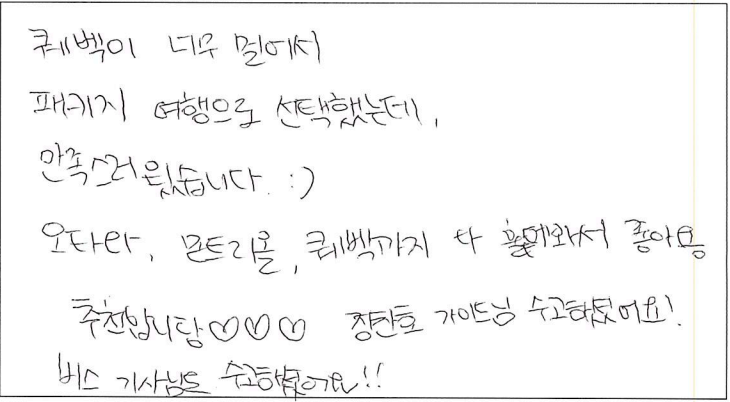 퀘벡이 너무 멀어서
패키지 여행으로 선택했는데,
만족스러웠습니다. :)
오타와, 몬트리올, 퀘벡까지 다 와서 좋아용
추천합니당♡♡♡ 장찬호 가이드님 수고하셨어요!
버스 기사님도 수고하셨어요!!